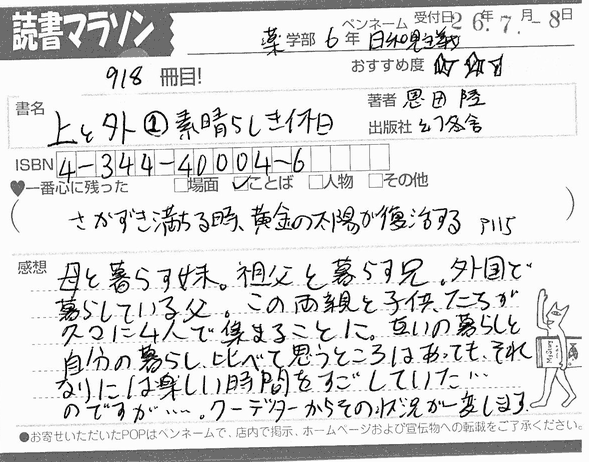 読書マラソン
ペンネーム 受付日 26年7月-8日
薬学部6年 日和見主義
918冊目! おすすめ度 ☆☆☆
書名 上と外① 素晴らしき休日
著者 恩田 陸
出版社 幻冬舎
ISBN 4-344-40004-6
♥一番心に残った □場面 ☑ことば □人物 □その他
( さかずき満ちる時、黄金の太陽が復活する P115 )
感想 母と暮らす妹。祖父と暮らす兄。外国で
暮らしている父。この両親と子供たちが
久々に4人で集まることに。互いの暮らしと
自分の暮らし、比べて思うところはあっても、それ
なりには楽しい時間をすごしていた…
のですが…。クーデターからその状況が一変します。
●お寄せいただいたPOPはペンネームで、店内で掲示、ホームページおよび宣伝物への転載をご了承ください。